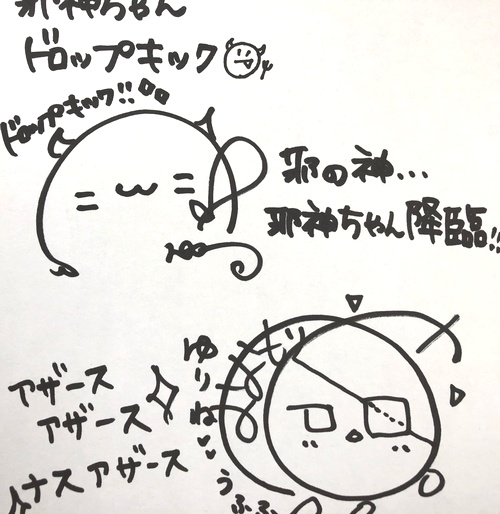 邪神ちゃん
ドロップキック
ドロップキック!!
邪の神...
邪神ちゃん降臨!!
ゆりね
アザース
アザース
ナスアザース
うふふ